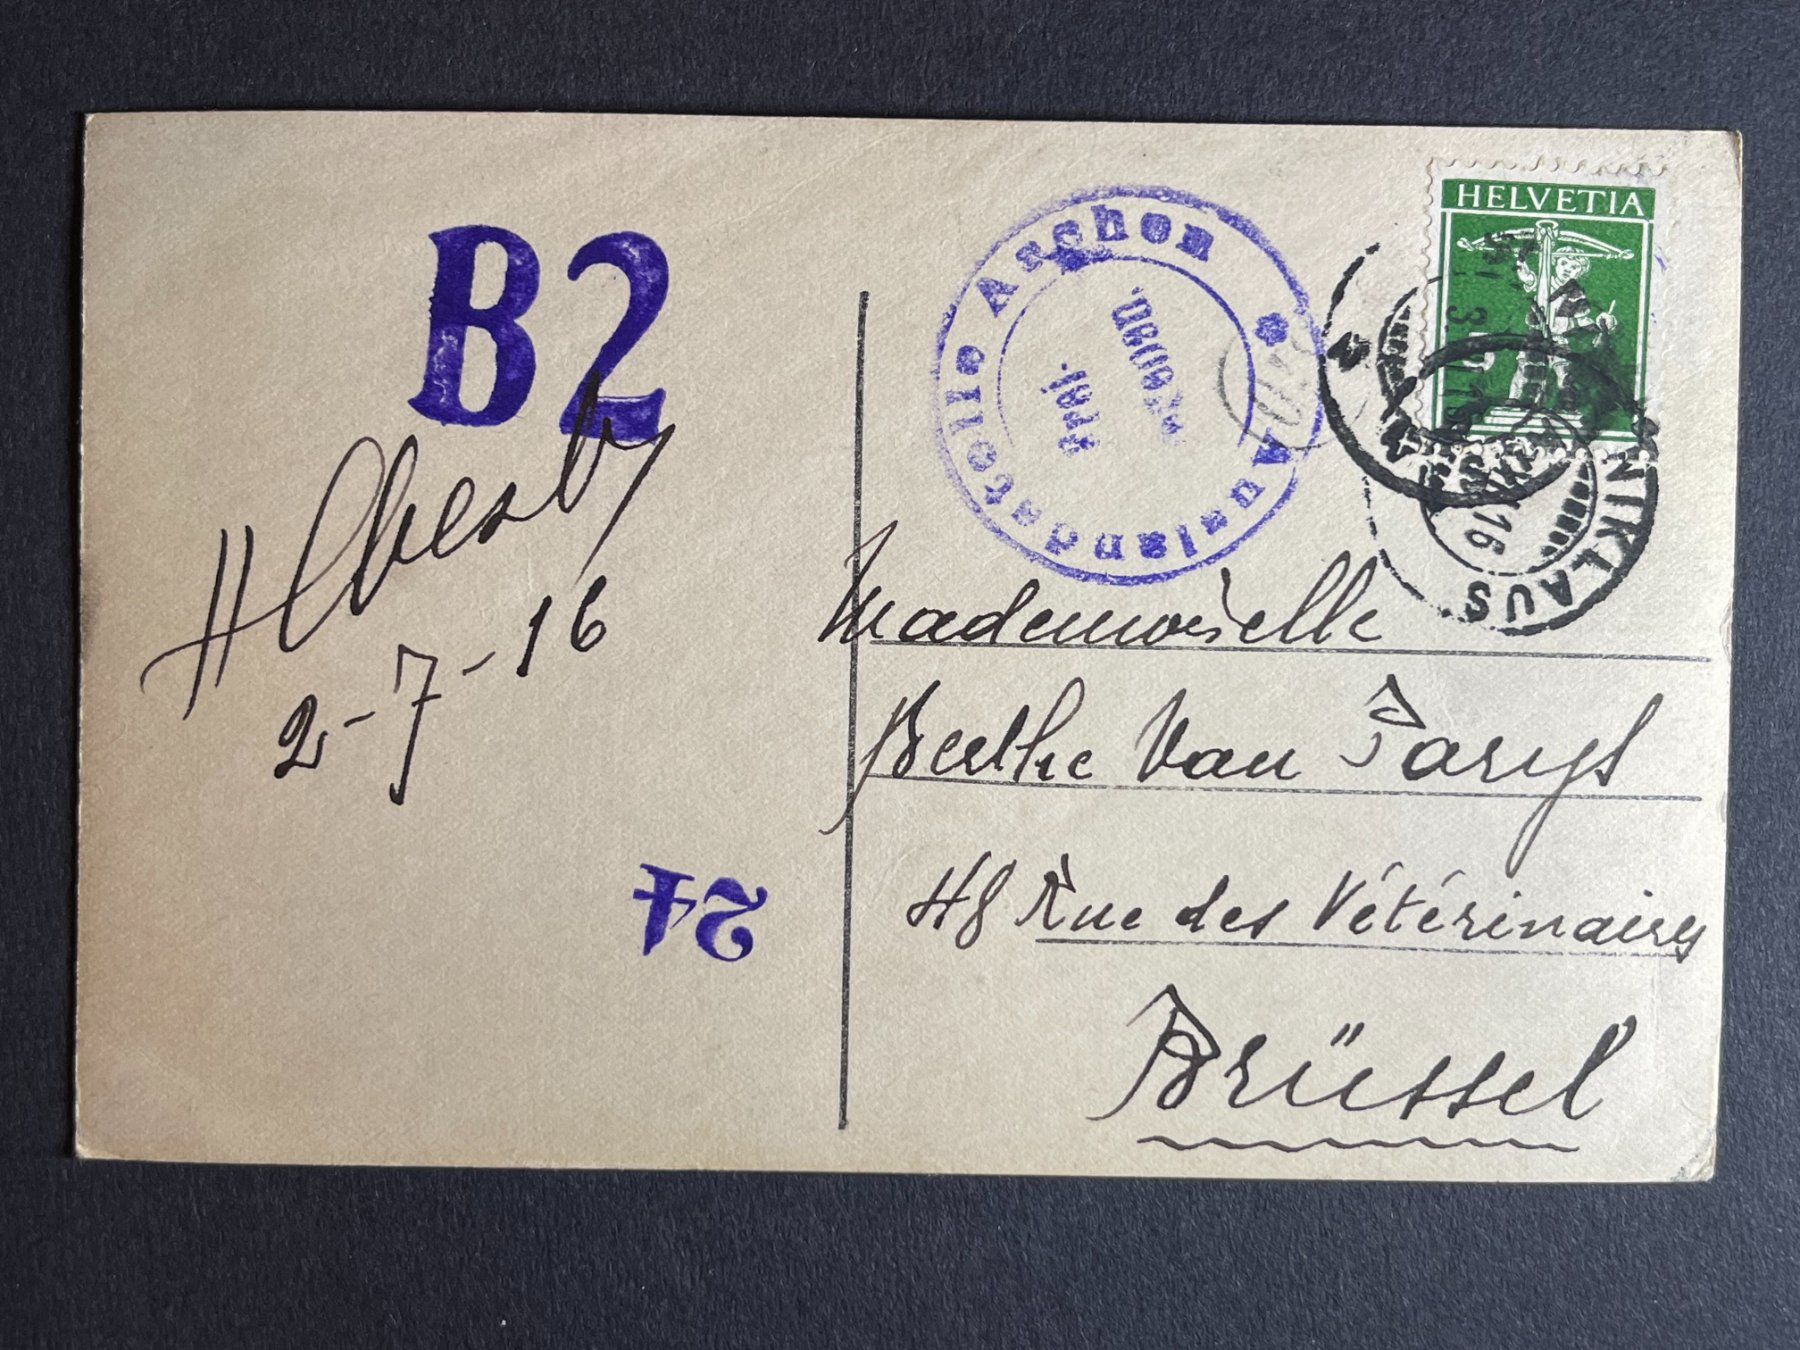 B2
2-7-16
24
Auslandsstelle Aachen
Freigegeben.
HELVETIA
NIKLAUS
Mademoiselle
Berthe Van Parys
48 Rue des Vétérinaires
Brüssel